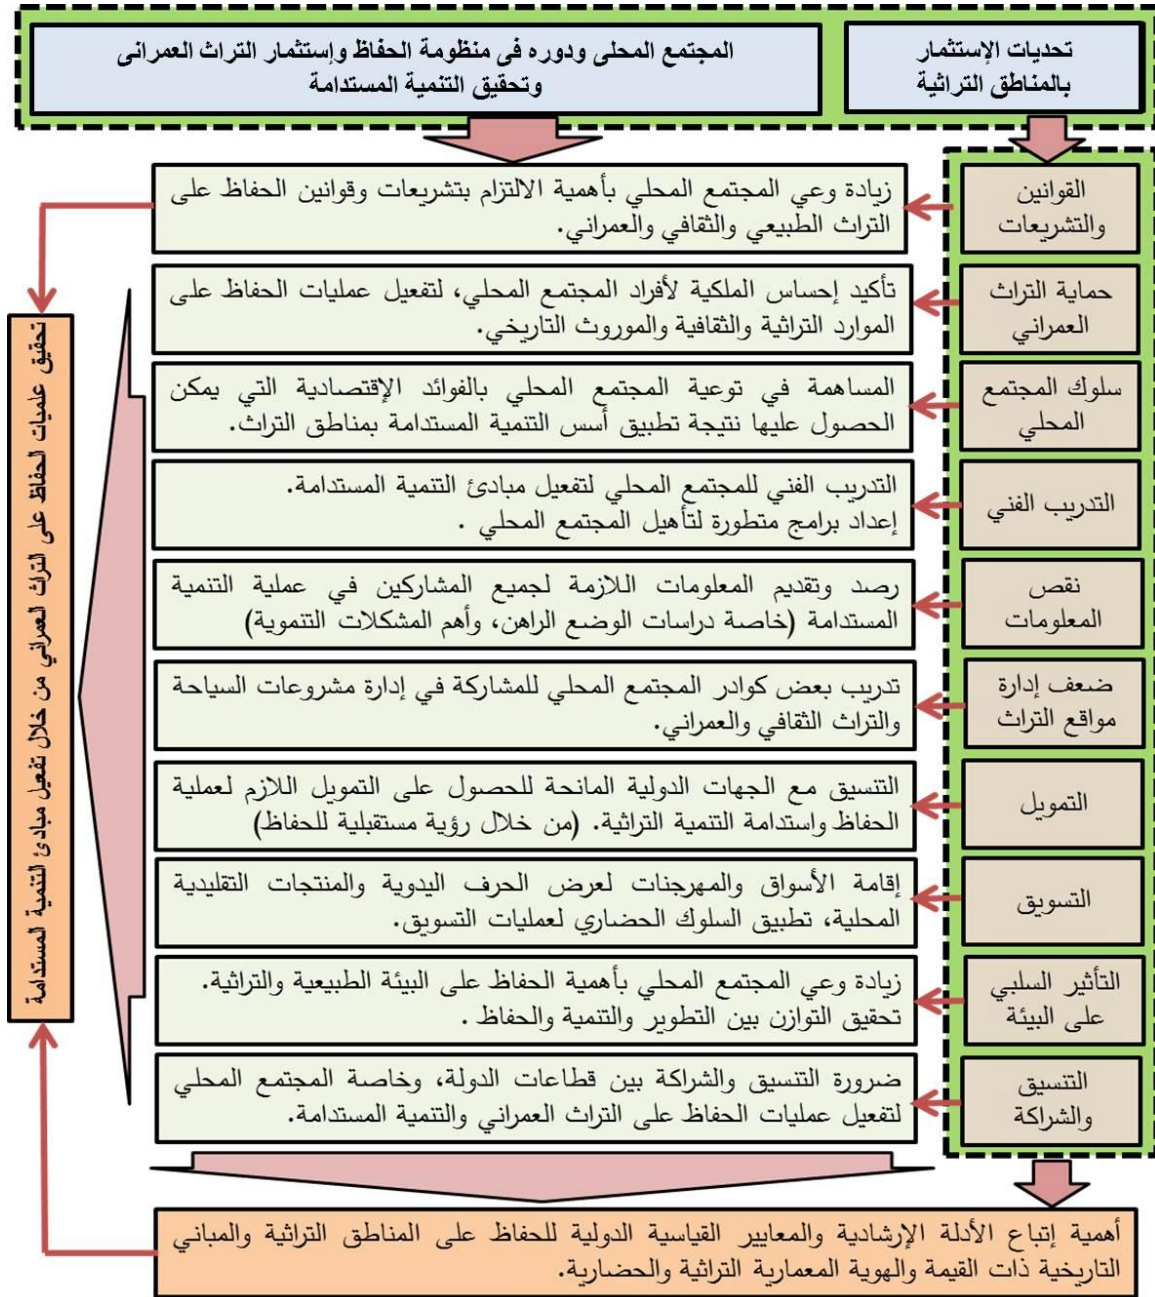 تحديات الإستثمار
بالمناطق التراثية
المجتمع المحلى ودوره فى منظومة الحفاظ وإستثمار التراث العمرانى
وتحقيق التنمية المستدامة
القوانين
والتشريعات
زيادة وعي المجتمع المحلي بأهمية الالتزام بتشريعات وقوانين الحفاظ على
التراث الطبيعي والثقافي والعمراني.
حماية التراث
العمراني
تأكيد إحساس الملكية لأفراد المجتمع المحلي، لتفعيل عمليات الحفاظ على
الموارد التراثية والثقافية والموروث التاريخي.
سلوك المجتمع
المحلي
المساهمة في توعية المجتمع المحلي بالفوائد الإقتصادية التي يمكن
الحصول عليها نتيجة تطبيق أسس التنمية المستدامة بمناطق التراث.
التدريب الفني
التدريب الفني للمجتمع المحلي لتفعيل مبادئ التنمية المستدامة.
إعداد برامج متطورة لتأهيل المجتمع المحلي .
نقص
المعلومات
رصد وتقديم المعلومات اللازمة لجميع المشاركين في عملية التنمية
المستدامة (خاصة دراسات الوضع الراهن، وأهم المشكلات التنموية)
ضعف إدارة
مواقع التراث
تدريب بعض كوادر المجتمع المحلي للمشاركة في إدارة مشروعات السياحة
والتراث الثقافي والعمراني.
التمويل
التنسيق مع الجهات الدولية المانحة للحصول على التمويل اللازم لعملية
الحفاظ واستدامة التنمية التراثية. (من خلال رؤية مستقبلية للحفاظ)
التسويق
إقامة الأسواق والمهرجنات لعرض الحرف اليدوية والمنتجات التقليدية
المحلية، تطبيق السلوك الحضاري لعمليات التسويق.
التأثير السلبي
على البيئة
زيادة وعي المجتمع المحلي بأهمية الحفاظ على البيئة الطبيعية والتراثية.
تحقيق التوازن بين التطوير والتنمية والحفاظ .
التنسيق
والشراكة
ضرورة التنسيق والشراكة بين قطاعات الدولة، وخاصة المجتمع المحلي
لتفعيل عمليات الحفاظ على التراث العمراني والتنمية المستدامة.
أهمية إتباع الأدلة الإرشادية والمعايير القياسية الدولية للحفاظ على المناطق التراثية والمباني
التاريخية ذات القيمة والهوية المعمارية التراثية والحضارية.
تحقيق علميات الحفاظ على التراث العمراني من خلال تفعيل مبادئ التنمية المستدامة